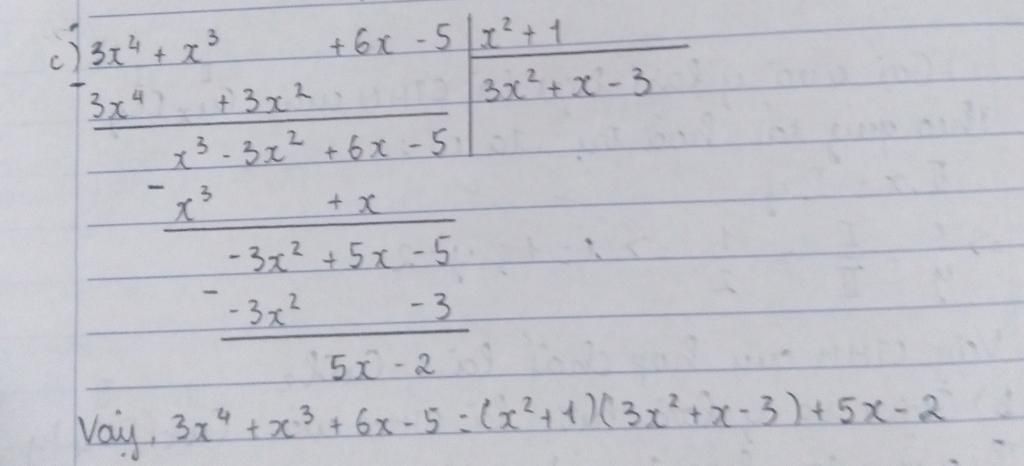 c) 3x⁴ + x³ + 6x - 5 | x² + 1
- 3x⁴ + 3x² | 3x² + x - 3
x³ - 3x² + 6x - 5
- x³ + x
-3x² + 5x - 5
- -3x² - 3
5x - 2
Vậy, 3x⁴ + x³ + 6x - 5 = (x² + 1)(3x² + x - 3) + 5x - 2